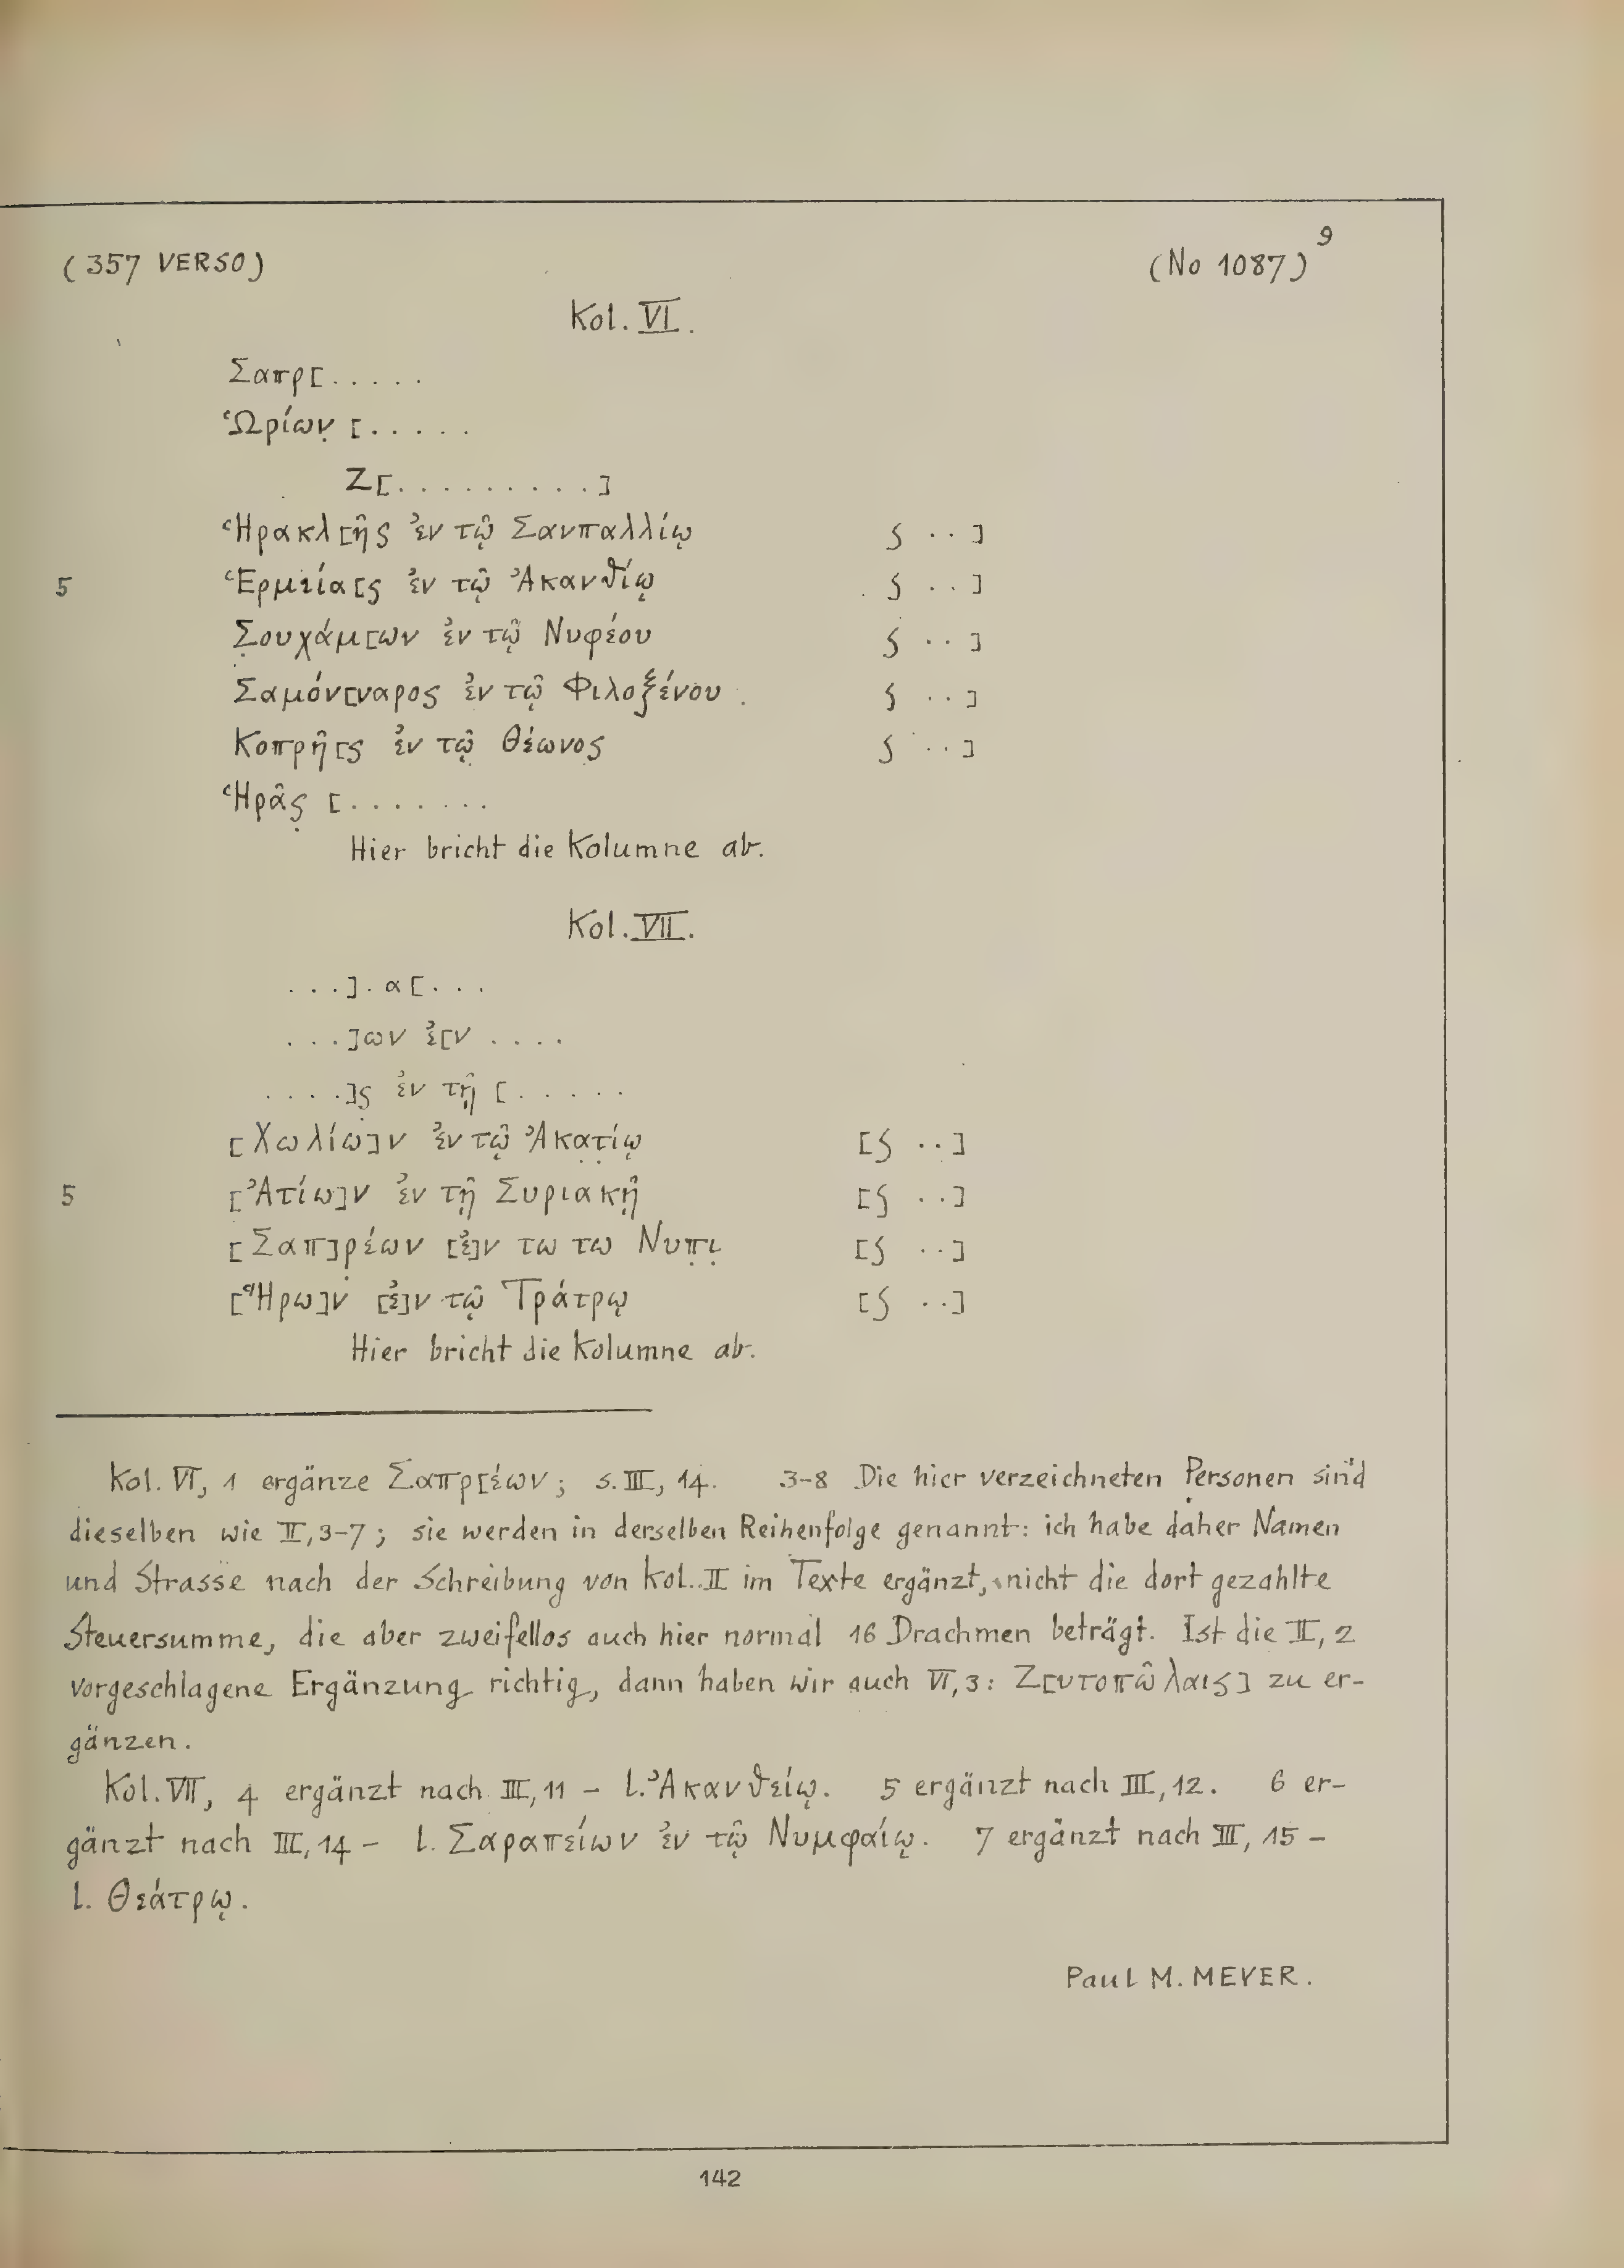 (357 VERSO)
(No 1087) 9
Kol. VI.
Σαπρ[.....
Ὡρίων̣ [.....
Ζ[.........]
Ἡρακλ[ῆς ἐν τῷ Σανπαλλίῳ ʃ ..]
5 Ἑρμιία[ς ἐν τῷ Ἀκανθίῳ ʃ ..]
Σ̣ουχάμ[ων ἐν τῷ Νυφέου ʃ ..]
Σαμόν[ναρος ἐν τῷ Φιλοξένου ʃ ..]
Κοπρῆ[ς ἐν τῷ Θέωνος ʃ ..]
Ἡρᾶς̣ [.......
Hier bricht die Kolumne ab.
Kol. VII.
...].α[...
...]ων ἐ[ν ....
....]ς ἐν τῇ [.....
[Χωλίω]ν ἐν τῷ Ἀκα̣τ̣ίῳ [ʃ ..]
5 [Ἀτίω]ν ἐν τῇ Συριακῇ [ʃ ..]
[Σαπ]ρέων [ἐ]ν τω τω Νυπ̣ι̣ [ʃ ..]
[Ἥρω]ν [ἐ]ν τῷ Τράτρῳ [ʃ ..]
Hier bricht die Kolumne ab.
Kol. VI, 1 ergänze Σαπρ[έων; s. III, 14. 3-8 Die hier verzeichneten Personen sind
dieselben wie II, 3-7; sie werden in derselben Reihenfolge genannt: ich habe daher Namen
und Strasse nach der Schreibung von Kol. II im Texte ergänzt, nicht die dort gezahlte
Steuersumme, die aber zweifellos auch hier normal 16 Drachmen beträgt. Ist die II, 2
vorgeschlagene Ergänzung richtig, dann haben wir auch VI, 3: Ζ[υτοπῶλαις] zu er-
gänzen.
Kol. VII, 4 ergänzt nach III, 11 - l. Ἀκανθείῳ. 5 ergänzt nach III, 12. 6 er-
gänzt nach III, 14 - l. Σαραπείων ἐν τῷ Νυμφαίῳ. 7 ergänzt nach III, 15 -
l. Θεάτρῳ.
Paul M. MEYER.
142